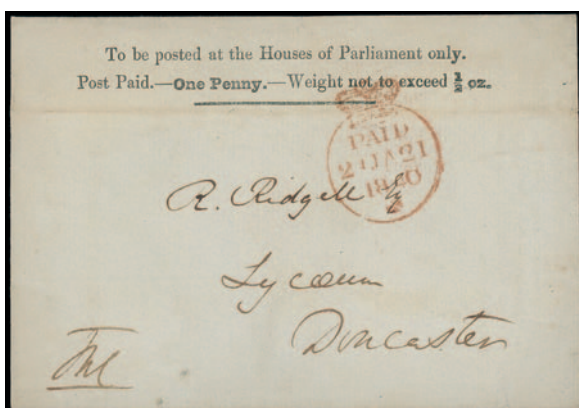 To be posted at the Houses of Parliament only.
Post Paid.—One Penny.—Weight not to exceed ½ oz.
PAID
21 JA 21
1840
R. Ridgell Esq
Lyceum
Doncaster